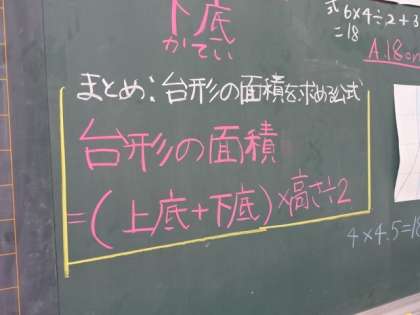 下底
かてい
式 6×4÷2+3
=18
A.18c
まとめ:台形の面積を求める公式
台形の面積
=(上底+下底)×高さ÷2
4×4.5=18